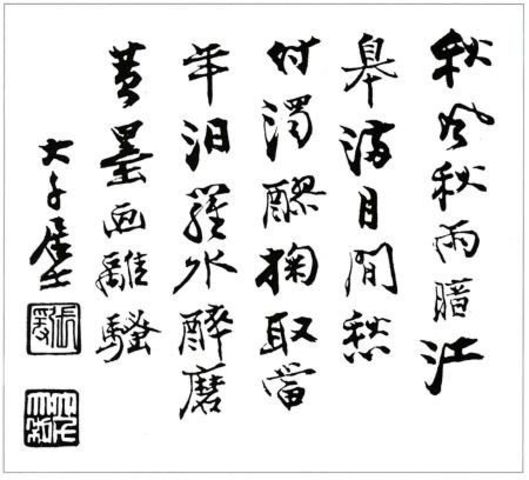 秋風秋雨暗江
皋滿目間愁
付濁醪掬取當
年汨羅水醉磨
黄墨画離騷
大千居士
張爰